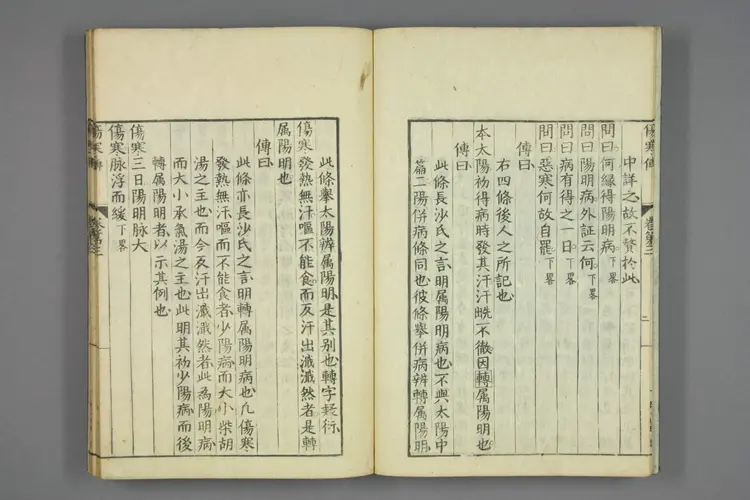 中詳之故不贅於此
問曰何縁得陽明病下畧
問曰陽明病外証云何下畧
問曰病有得之一日下畧
問曰惡寒何故自罷下畧
傳曰
右四條後人之所記也
本太陽初得病時發其汗汗先出不徹因轉属陽明也
傳曰
此條長沙氏之言明属陽明病也不與太陽中
篇二陽併病條同也彼條擧併病辨轉属陽明
此條擧太陽辨属陽明是其別也轉字疑衍
傷寒發熱無汗嘔不能食而反汗出濈濈然者是轉
属陽明也
傳曰
此條亦長沙氏之言明轉属陽明病也凡傷寒
發熱無汗嘔而不能食者少陽病而大小柴胡
湯之主也而今反汗出濈濈然者此為陽明病
而大小承氣湯之主也此明其初少陽病而後
轉属陽明者以示其例也
傷寒三日陽明脉大
傷寒脉浮而緩下畧